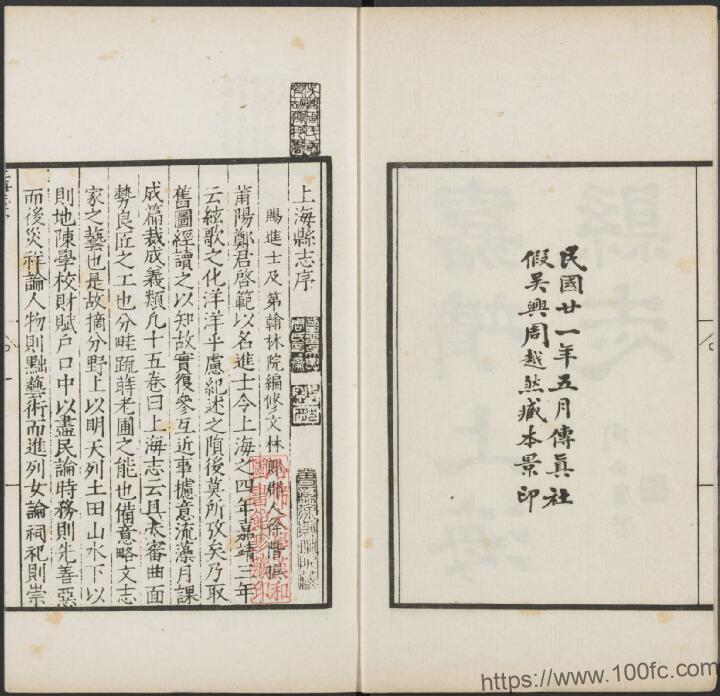 民國廿一年五月傳真社
假吳興周越然藏本景印
上海縣志序
賜進士及第翰林院編修文林郎郡人徐階撰
莆陽鄭君啓範以名進士令上海之四年嘉靖三年
云絃歌之化洋洋乎慮紀述之隕後莫所攷矣乃取
舊圖經讀之以知故實復參互近事攄意流藻月課
成篇裁成義類凡十五卷曰上海志云且夫審曲面
勢良匠之工也分畦疏蒔老圃之能也備意略文志
家之藝也是故摘分野上以明天列土田山水下以
則地陳學校財賦戶口中以盡民論時務則先善惡
而後災祥論人物則黜藝術而進列女論祠祀則崇
https://www.100fc.com